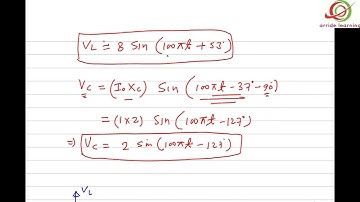 arride learning
V_L = 8 Sin (100πt + 53°)
V_C = (I₀ X_C) Sin (100πt - 37° - 90°)
= (1×2) Sin (100πt - 127°)
⇒ V_C = 2 sin (100πt - 127°)
V_L